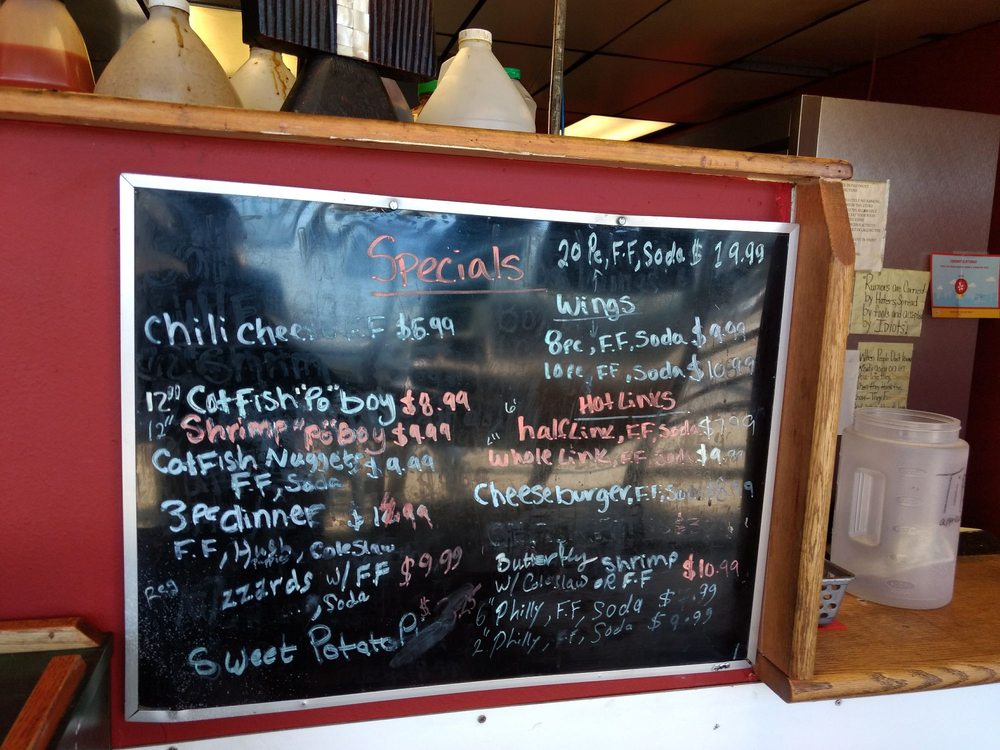 Specials
Chili Chee F $6.99
12" Catfish "Po" boy $8.99
12" Shrimp "Po" Boy $9.99
Catfish Nuggets $9.99
F.F, Soda
3pc dinner $12.99
F.F, Hush, Coleslaw
Reg zzards w/ F.F $9.99
, Soda
Sweet Potato P
20 Pc, F.F, Soda $19.99
Wings
8pc, F.F, Soda $9.99
10pc, FF, Soda $10.99
Hot Links
6" half Link, F.F, Soda $7.99
Whole Link, F.F, Soda $9.99
Cheeseburger, F.F, Soda
Butterfly Shrimp $10.99
w/ Coleslaw or F.F
6" Philly, F.F, Soda $ .99
2" Philly, F.F, Soda $9.99
Rumors are Carried
by Haters, Spread
by fools and accepted
by Idiots!
When People Don't